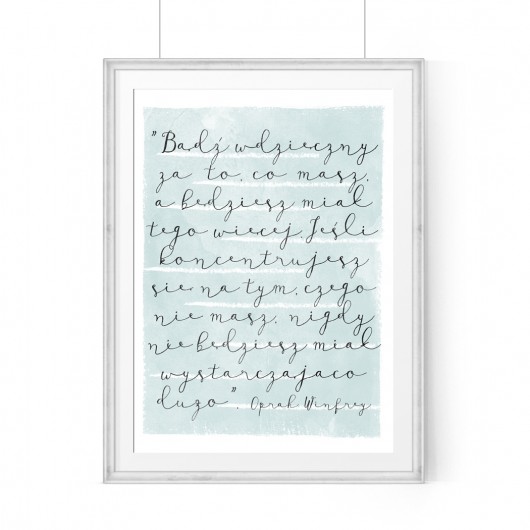 "Badź wdzieczny
za to, co masz,
a bedziesz miał
tego wiecej. Jeśli
koncentrujesz
sie na tym, czego
nie masz, nigdy
nie bedziesz miał
wystarczajaco
duzo". Oprah Winfrey